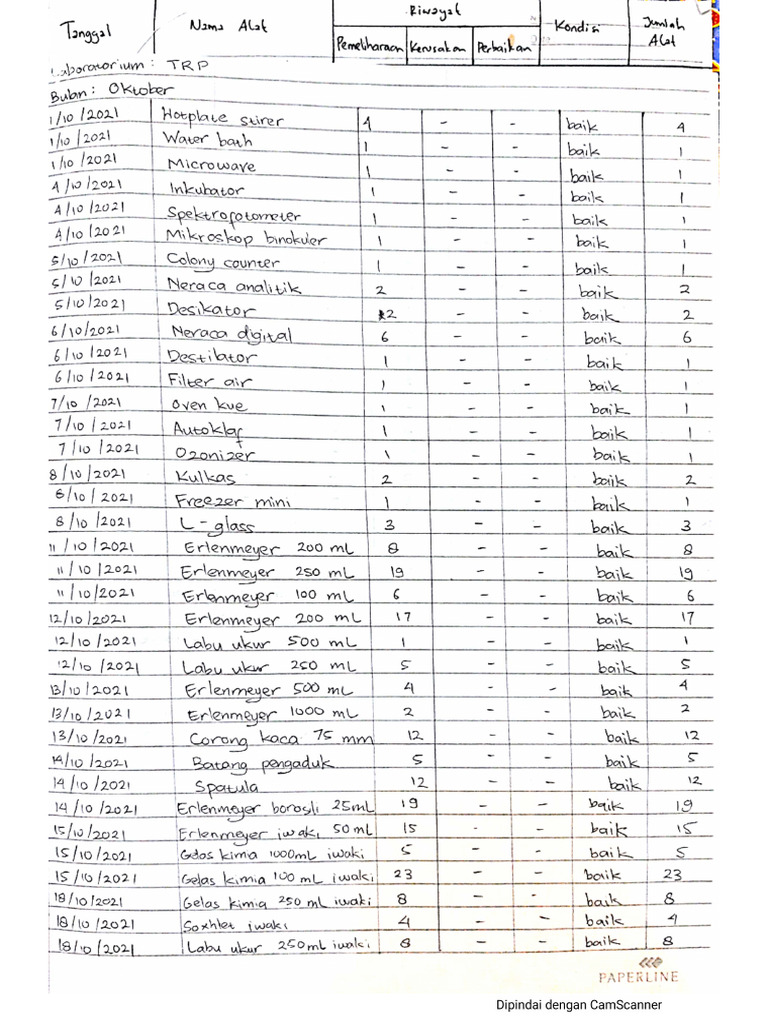 Tanggal Nama Alat Riwayat Kondisi Jumlah Alat
Pemeliharaan Kerusakan Perbaikan
Laboratorium : TRP
Bulan : Oktober
1/10/2021 Hotplate stirer 4 - - baik 4
1/10/2021 Water bath 1 - - baik 1
1/10/2021 Microwave 1 - - baik 1
4/10/2021 Inkubator 1 - - baik 1
4/10/2021 Spektrofotometer 1 - - baik 1
4/10/2021 Mikroskop binokuler 1 - - baik 1
5/10/2021 Colony counter 1 - - baik 1
5/10/2021 Neraca analitik 2 - - baik 2
5/10/2021 Desikator 2 - - baik 2
6/10/2021 Neraca digital 6 - - baik 6
6/10/2021 Destilator 1 - - baik 1
6/10/2021 Filter air 1 - - baik 1
7/10/2021 Oven kue 1 - - baik 1
7/10/2021 Autoklaf 1 - - baik 1
7/10/2021 Ozonizer 1 - - baik 1
8/10/2021 Kulkas 2 - - baik 2
8/10/2021 Freezer mini 1 - - baik 1
8/10/2021 L-glass 3 - - baik 3
11/10/2021 Erlenmeyer 200 mL 8 - - baik 8
11/10/2021 Erlenmeyer 250 mL 19 - - baik 19
11/10/2021 Erlenmeyer 100 mL 6 - - baik 6
12/10/2021 Erlenmeyer 200 mL 17 - - baik 17
12/10/2021 Labu ukur 500 mL 1 - - baik 1
12/10/2021 Labu ukur 250 mL 5 - - baik 5
13/10/2021 Erlenmeyer 500 mL 4 - - baik 4
13/10/2021 Erlenmeyer 1000 mL 2 - - baik 2
13/10/2021 Corong kaca 75 mm 12 - - baik 12
14/10/2021 Batang pengaduk 5 - - baik 5
14/10/2021 Spatula 12 - - baik 12
14/10/2021 Erlenmeyer borosli 25mL 19 - - baik 19
15/10/2021 Erlenmeyer iwaki 50 mL 15 - - baik 15
15/10/2021 Gelas kima 1000mL iwaki 5 - - baik 5
15/10/2021 Gelas kimia 100 mL iwaki 23 - - baik 23
18/10/2021 Gelas kimia 250 mL iwaki 8 - - baik 8
18/10/2021 Soxhlet iwaki 4 - - baik 4
18/10/2021 Labu ukur 250 mL iwaki 8 - - baik 8
PAPERLINE
Dipindai dengan CamScanner